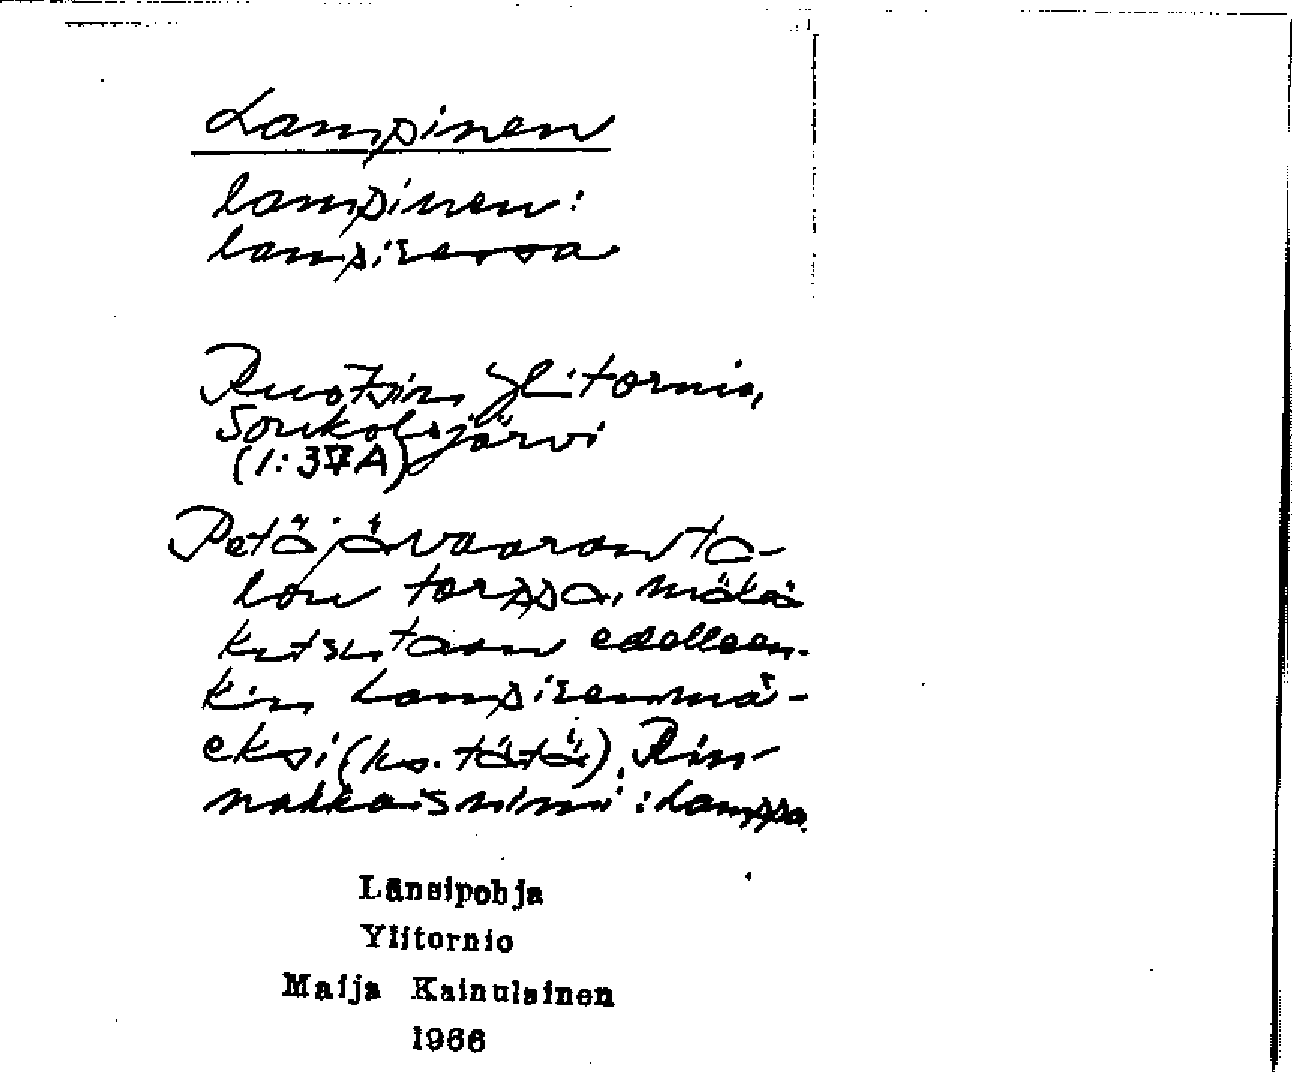 Lampinen
lampinen:
lampisessa
Ruotsin Ylitornio,
Soukolojärvi
(1:37A)
Petäjävaaran ta-
lon torppa, mäkeä
kutsutaan edelleen-
kin Lampisenmä-
eksi (ks. tätä). Rin-
nakkaisnimi: Lamppa.
Länsipohja
Ylitornio
Maija Kainulainen
1966